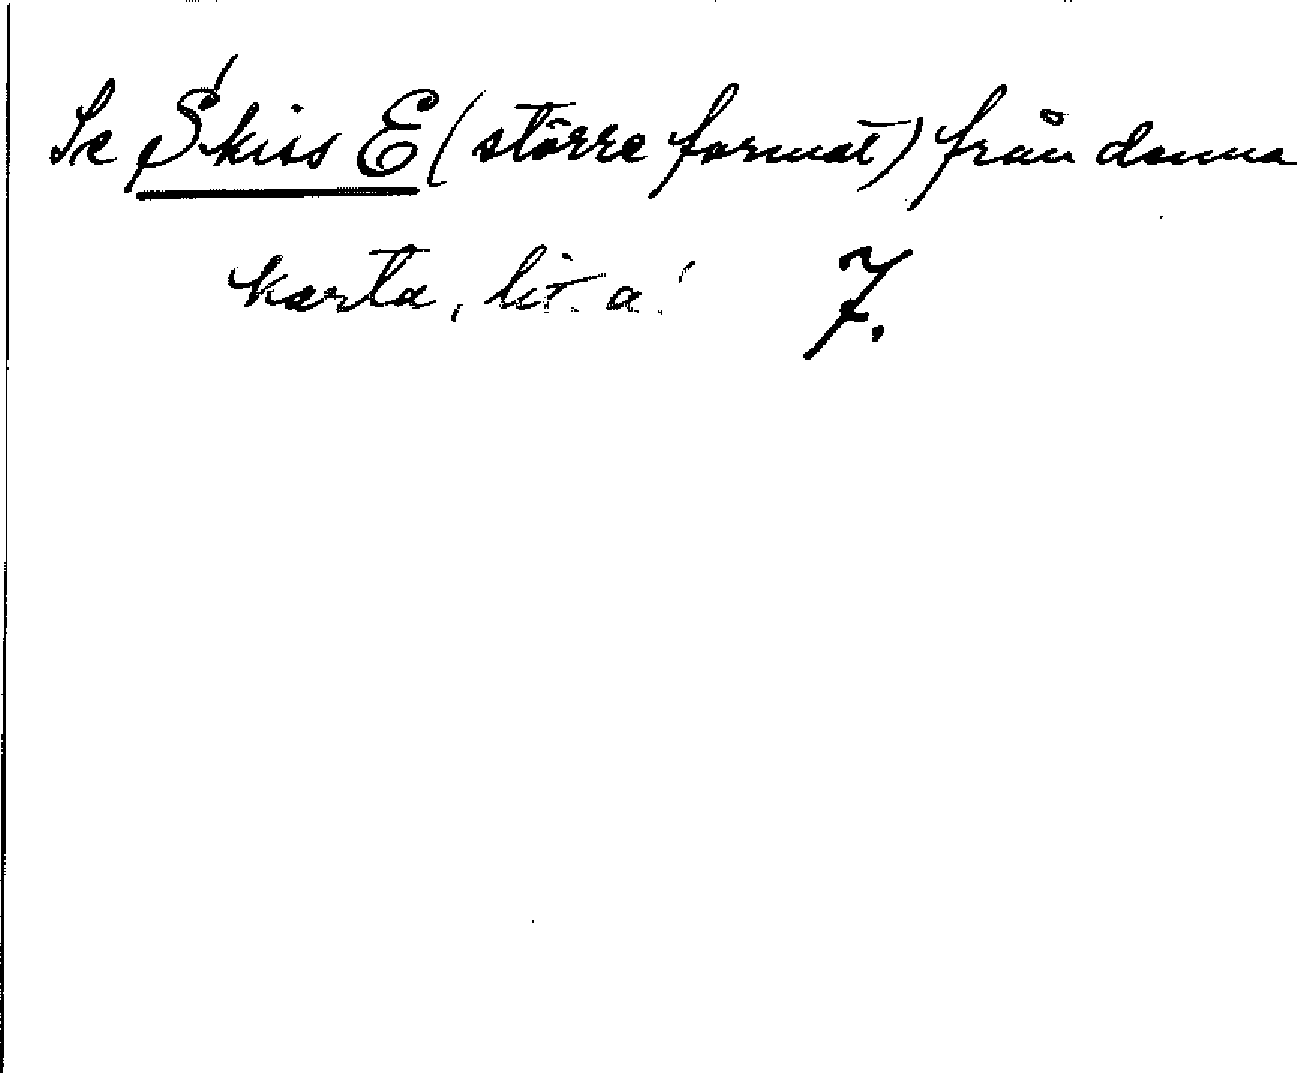 Se Skiss E (större format) från denna
karta, lit. a! 7.